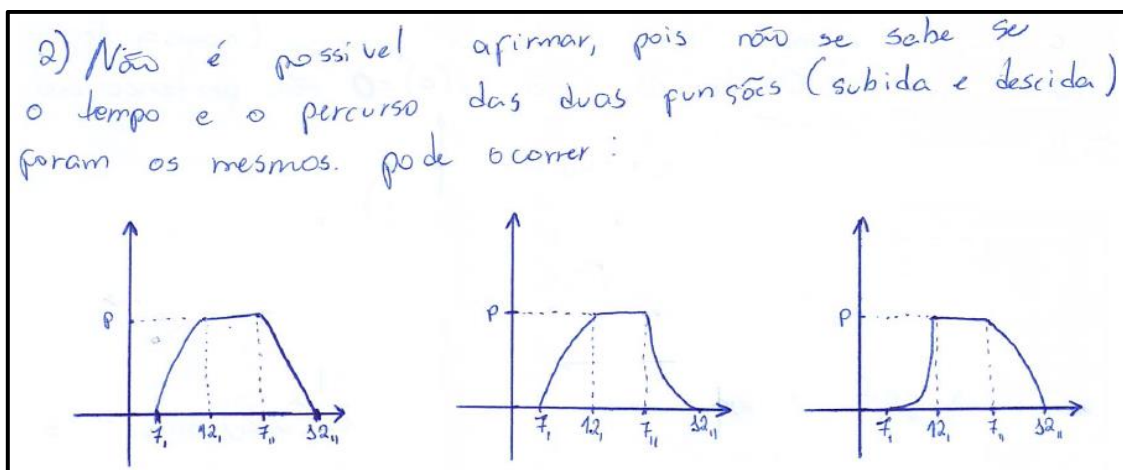 2) Não é possível afirmar, pois não se sabe se
o tempo e o percurso das duas funções (subida e descida)
foram os mesmos. pode ocorrer:
P
7, 12, 7,, 12,,
P
7, 12, 7,, 12,,
P
7, 12, 7,, 12,,